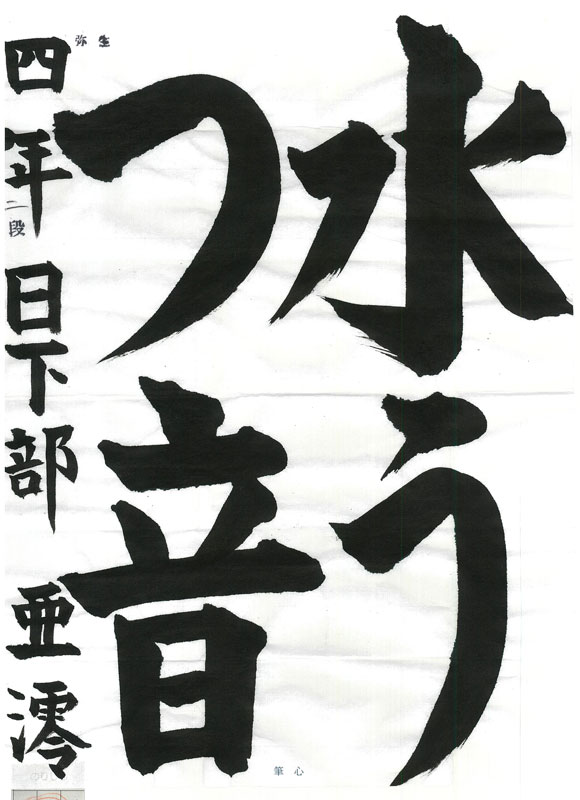 水う
つ音
四年 二段 日下部 亜澪
弥生
筆心